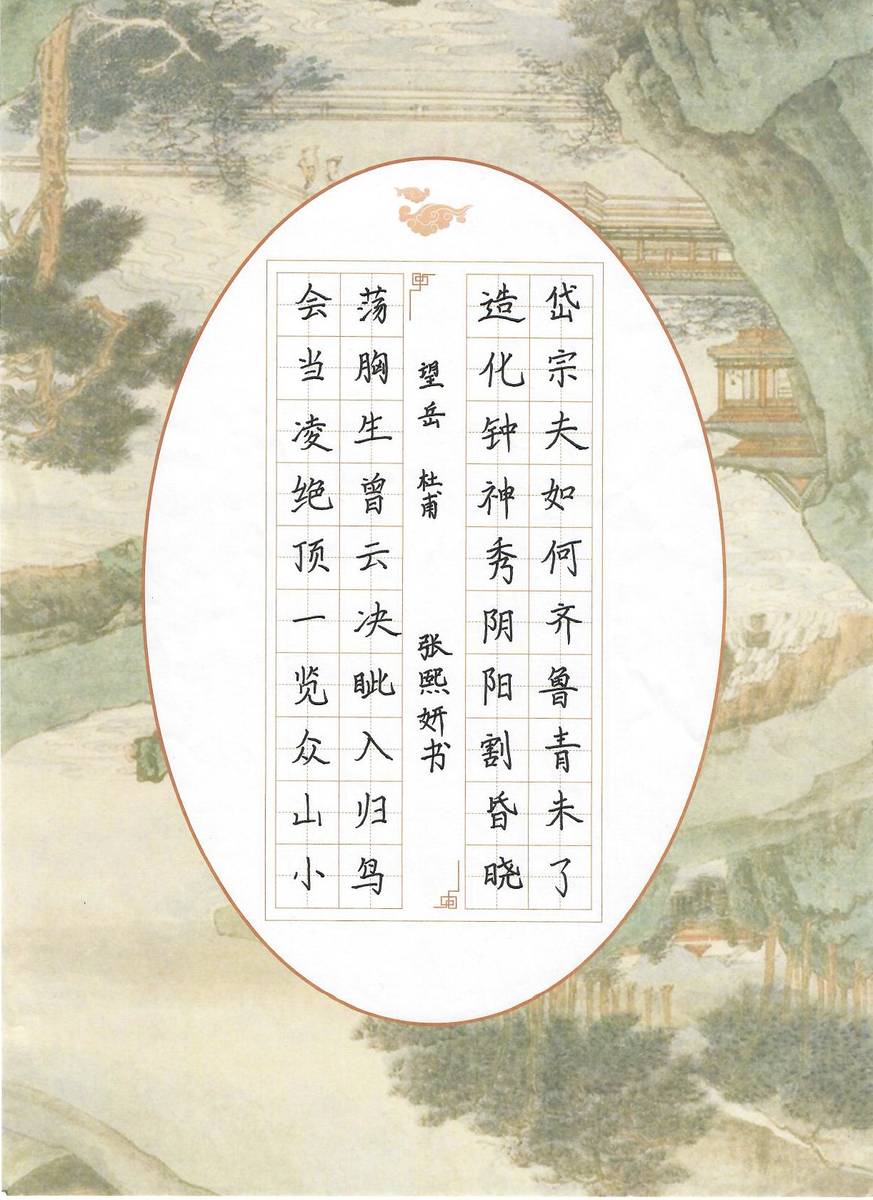 岱宗夫如何齐鲁青未了
造化钟神秀阴阳割昏晓
望岳 杜甫 张熙妍书
荡胸生曾云决眦入归鸟
会当凌绝顶一览众山小